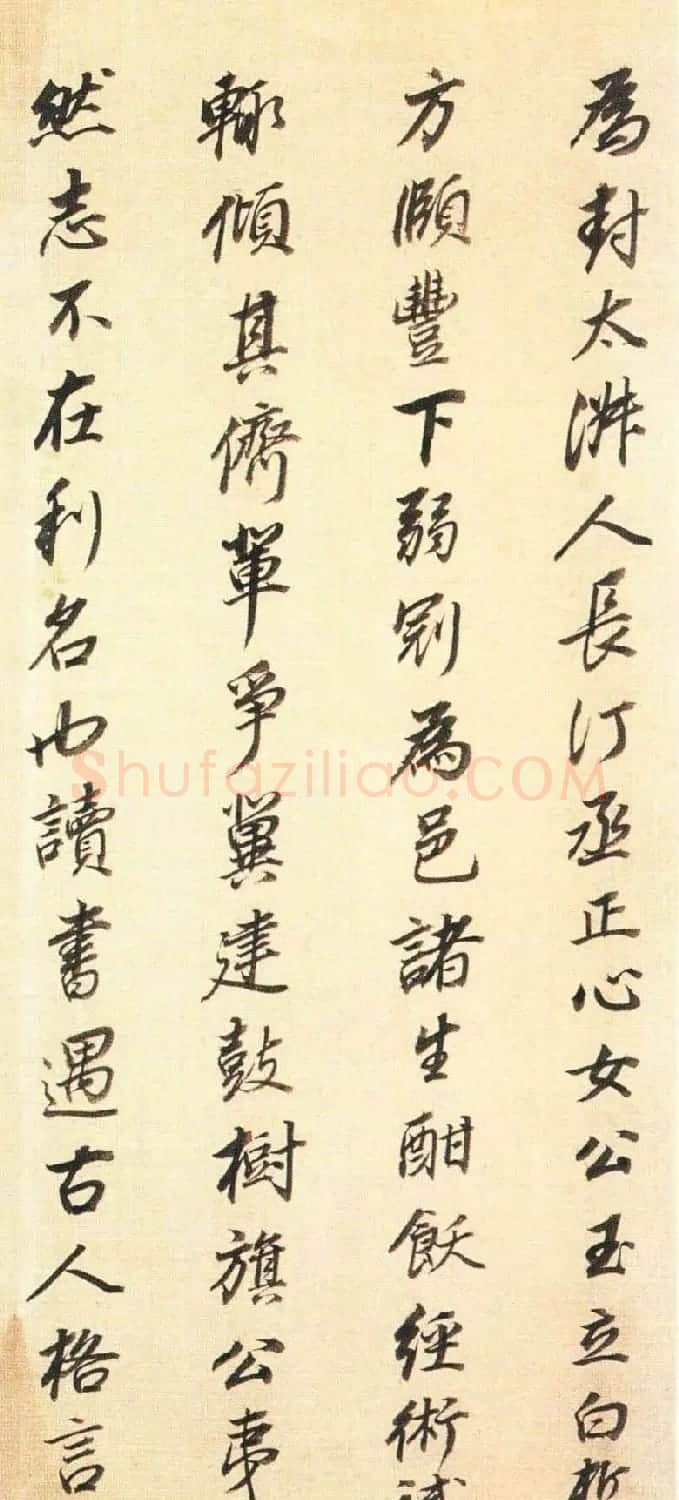 為封太淑人長汀丞正心女公玉立白皙
方頤豐下弱冠為邑諸生酣飫經術試
輒傾其儕輩爭冀建鼓樹旗公夷
然志不在利名也讀書遇古人格言
Shufaziliao.COM